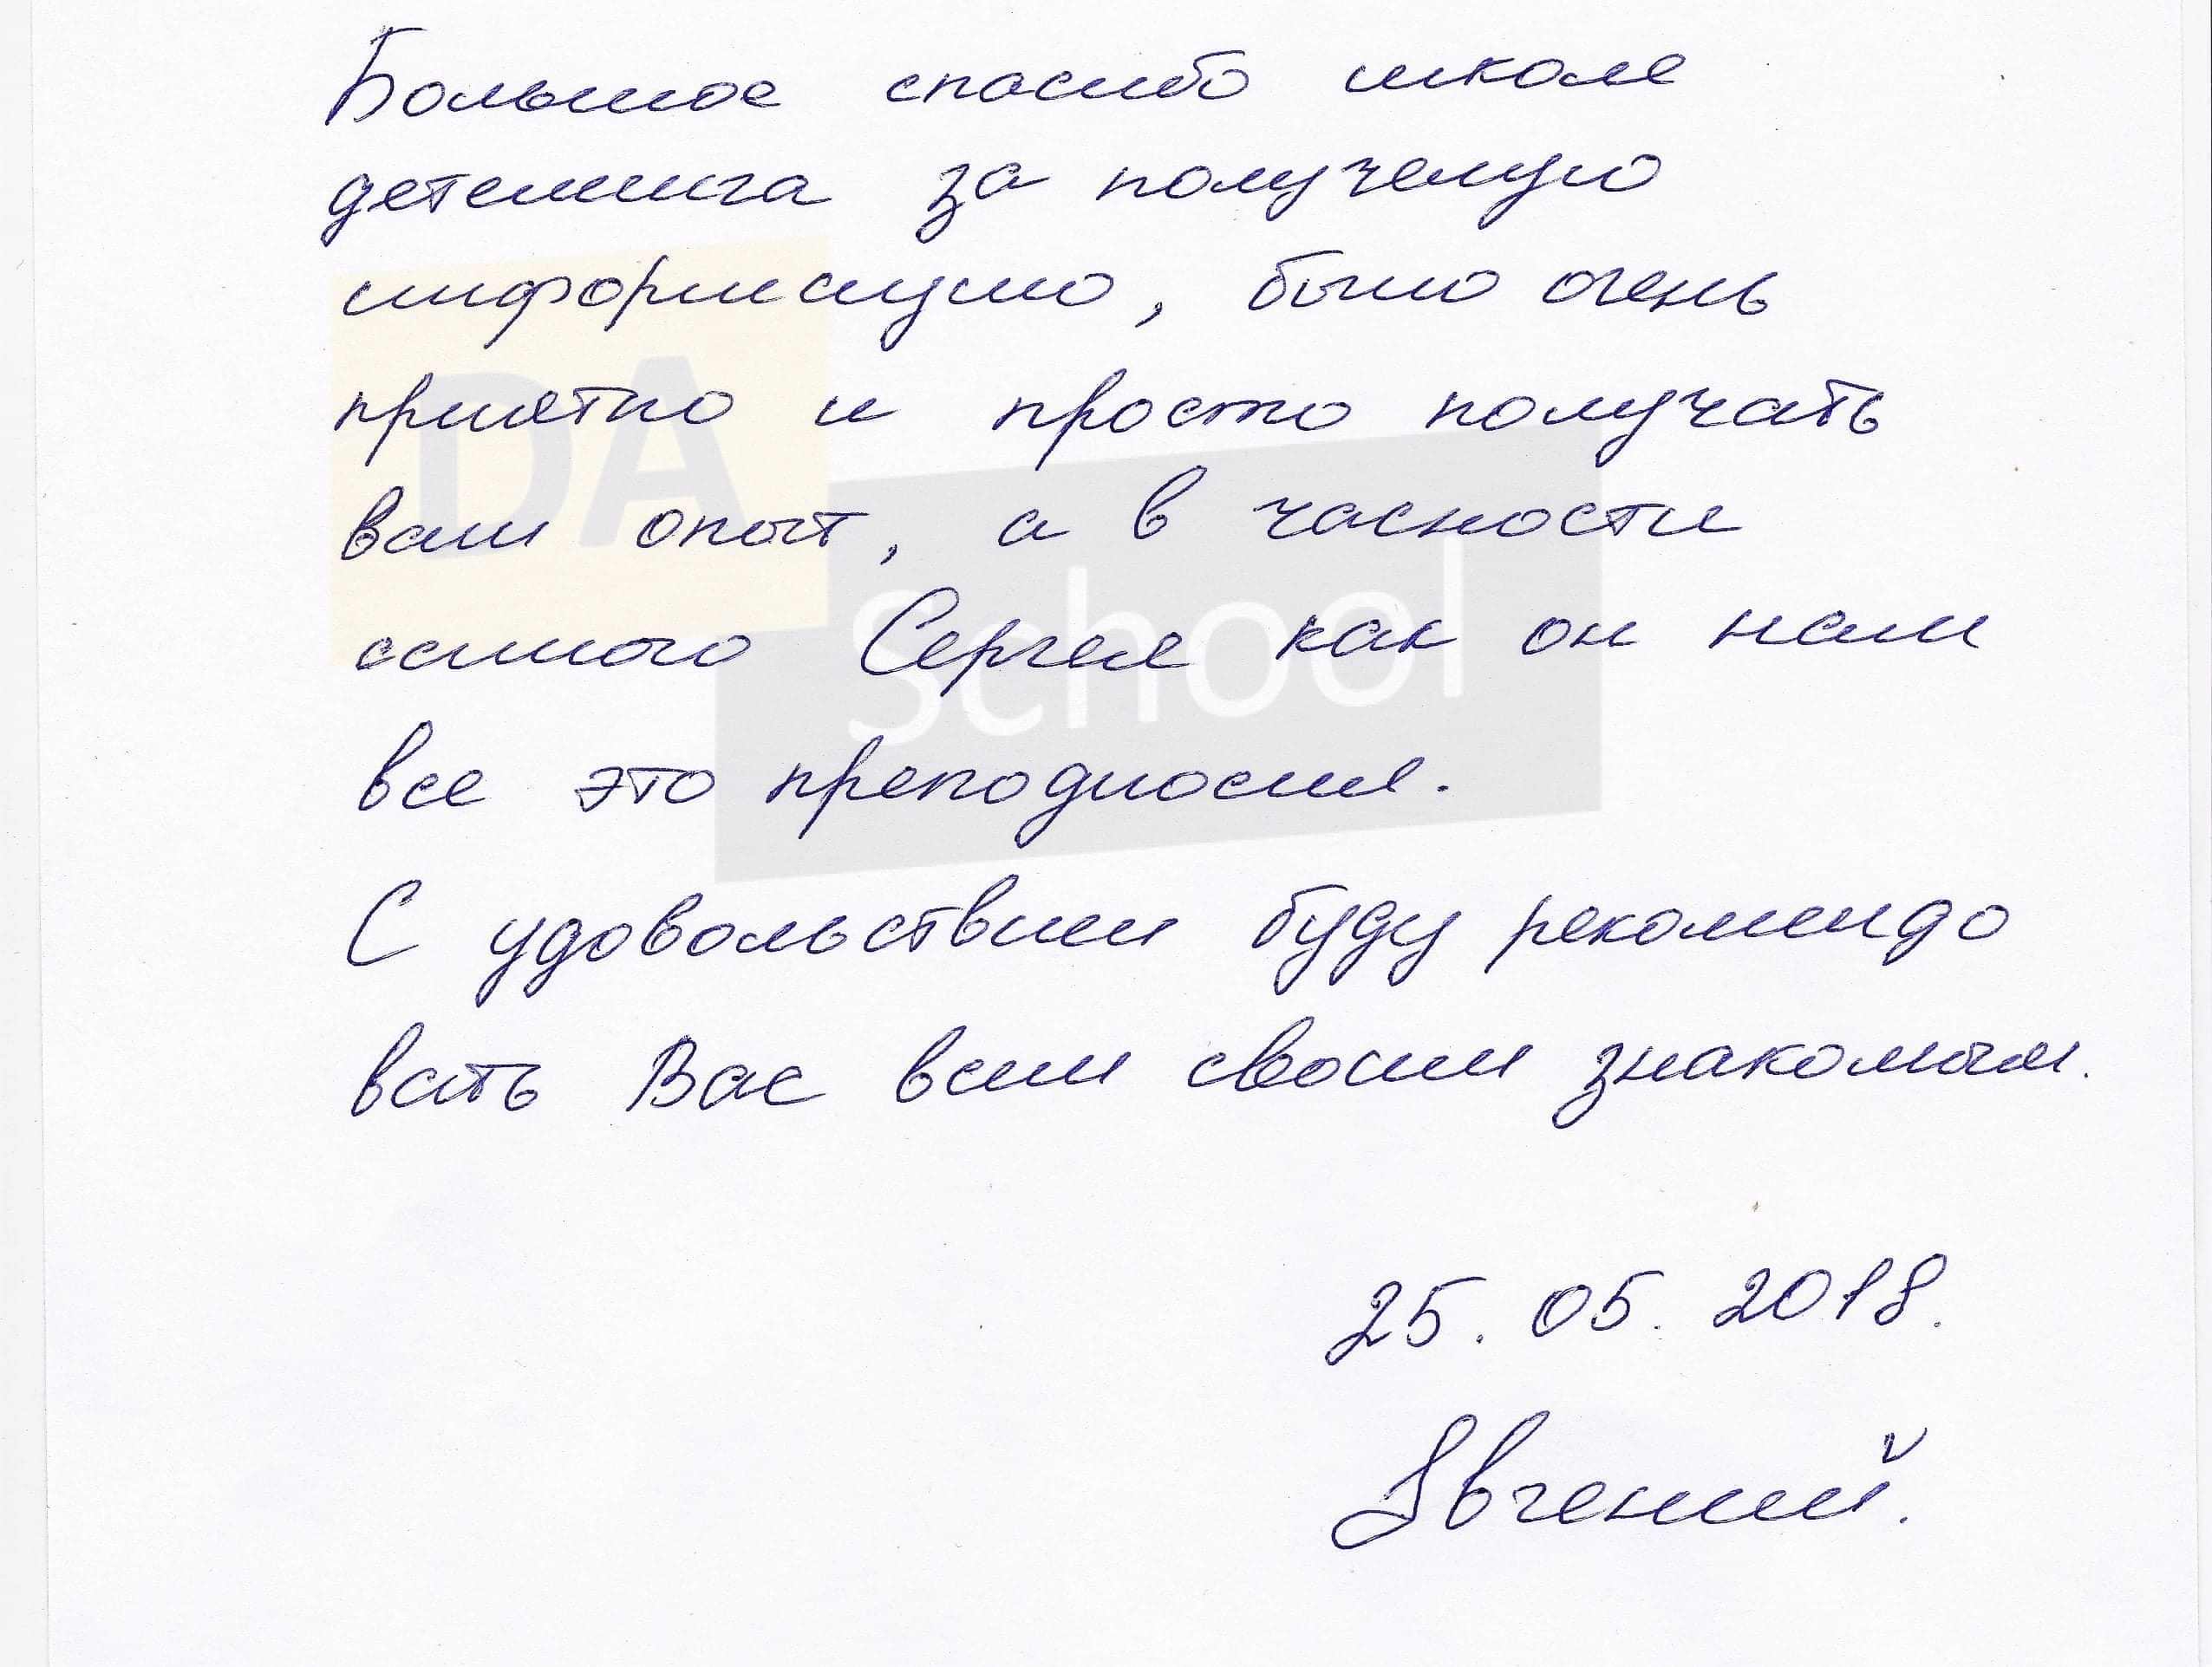 Большое спасибо школе
детеминга за получемую
информацию, было очень
приятно и просто получать
ваш опыт, а в часности
самого Сергея как он нам
все это преподносил.
С удовольствием буду рекомендо
вать Вас всем своим знакомым.
25.05.2018.
Евгений.
DA
School